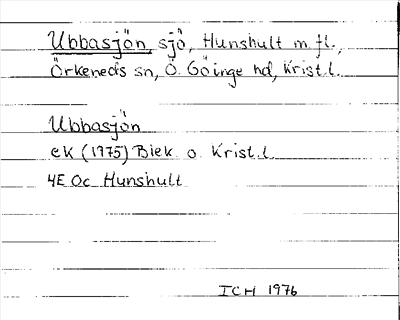 Ubbasjön, sjö, Hunshult m.fl.,
Örkeneds sn, Ö. Göinge hd, Krist.l.
Ubbasjön
ek (1975) Blek. o. Krist.l.
4E Oc Hunshult
ICH 1976